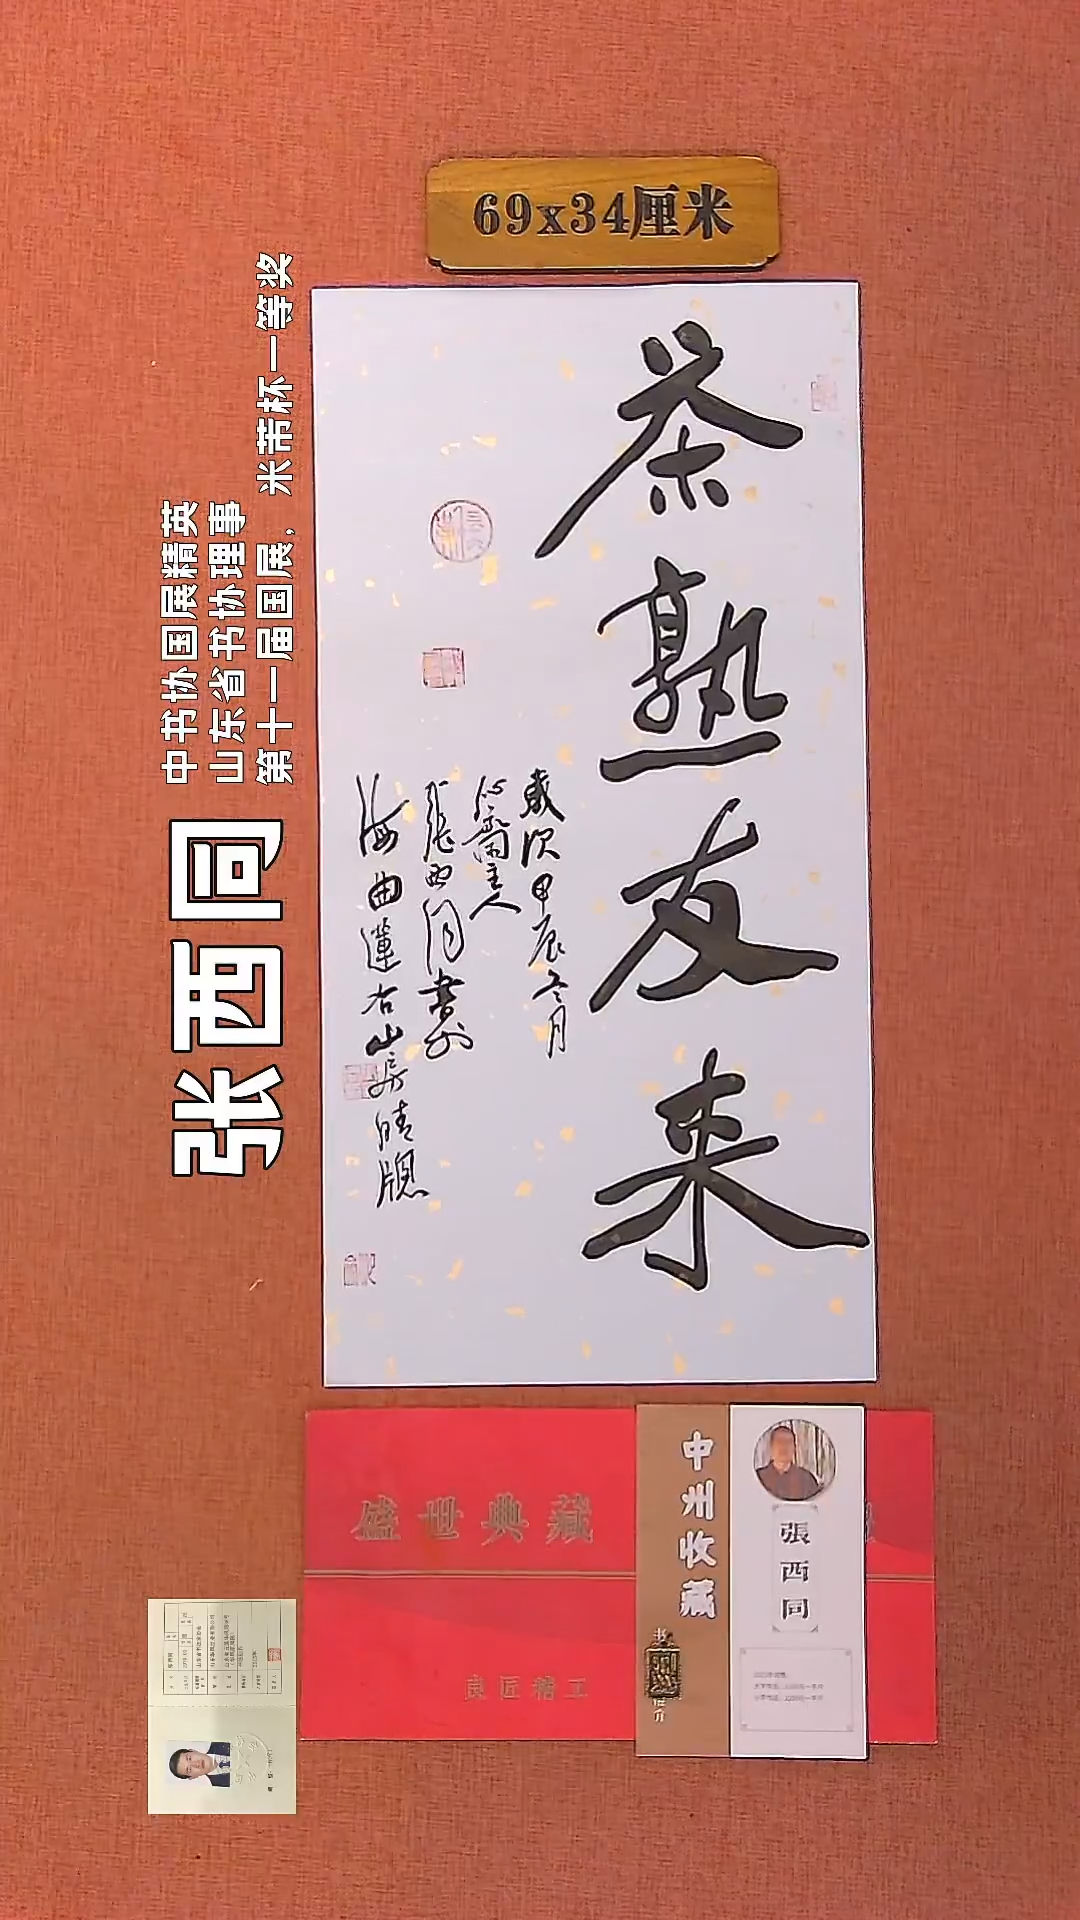 69x34厘米
茶熟友来
歲次甲辰冬月
心齋主人
張西同書於
海曲蓮石山房晴牕
张西同
中书协国展精英
山东省书协理事
第十一届国展，米芾杯一等奖
盛世典藏
良匠精工
中州收藏
張西同